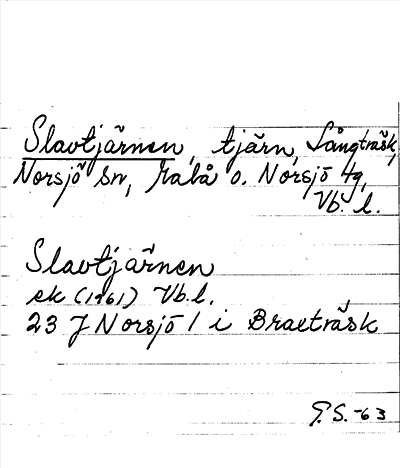 Slavtjärnen, tjärn, Långträsk,
Norsjö sn, Malå o. Norsjö tg,
Vb. l.
Slavtjärnen
ek (1961) Vb.l.
23 J Norsjö 1 i Braxträsk
G.S. -63